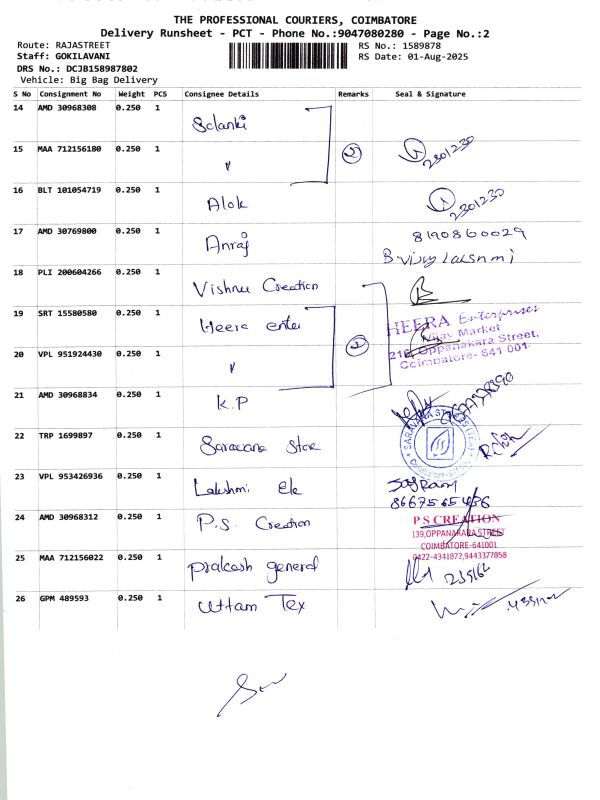 THE PROFESSIONAL COURIERS, COIMBATORE
Delivery Runsheet - PCT - Phone No.:9047080280 - Page No.:2
Route: RAJASTREET
RS No.: 1589878
Staff: GOKILAVANI
RS Date: 01-Aug-2025
DRS No.: DCJB158987802
Vehicle: Big Bag Delivery
S No Consignment No Weight PCS Consignee Details Remarks Seal & Signature
14 AMD 30968308 0.250 1 Solanki
15 MAA 712156180 0.250 1 " 2 2301230
16 BLT 101054719 0.250 1 Alok 2301230
17 AMD 30769800 0.250 1 Anraj 8190860029
B. Vijay Lakshmi
18 PLI 200604266 0.250 1 Vishnu Creation
19 SRT 15580580 0.250 1 Heera enter
HEERA Enterprises
Vijay Market
20 VPL 951924430 0.250 1 " 2 216, Oppanakara Street,
Coimbatore- 641 001
21 AMD 30968834 0.250 1 K.P
22 TRP 1699897 0.250 1 Saravana Store
SARAVANA STORES (TEX)
23 VPL 953426936 0.250 1 Lakshmi Ele
24 AMD 30968312 0.250 1 P.S. Creation
P S CREATION
139,OPPANAKARA STREET
COIMBATORE-641001
0422-4341872,9443377858
25 MAA 712156022 0.250 1 prakash general
26 GPM 489593 0.250 1 Uttam Tex